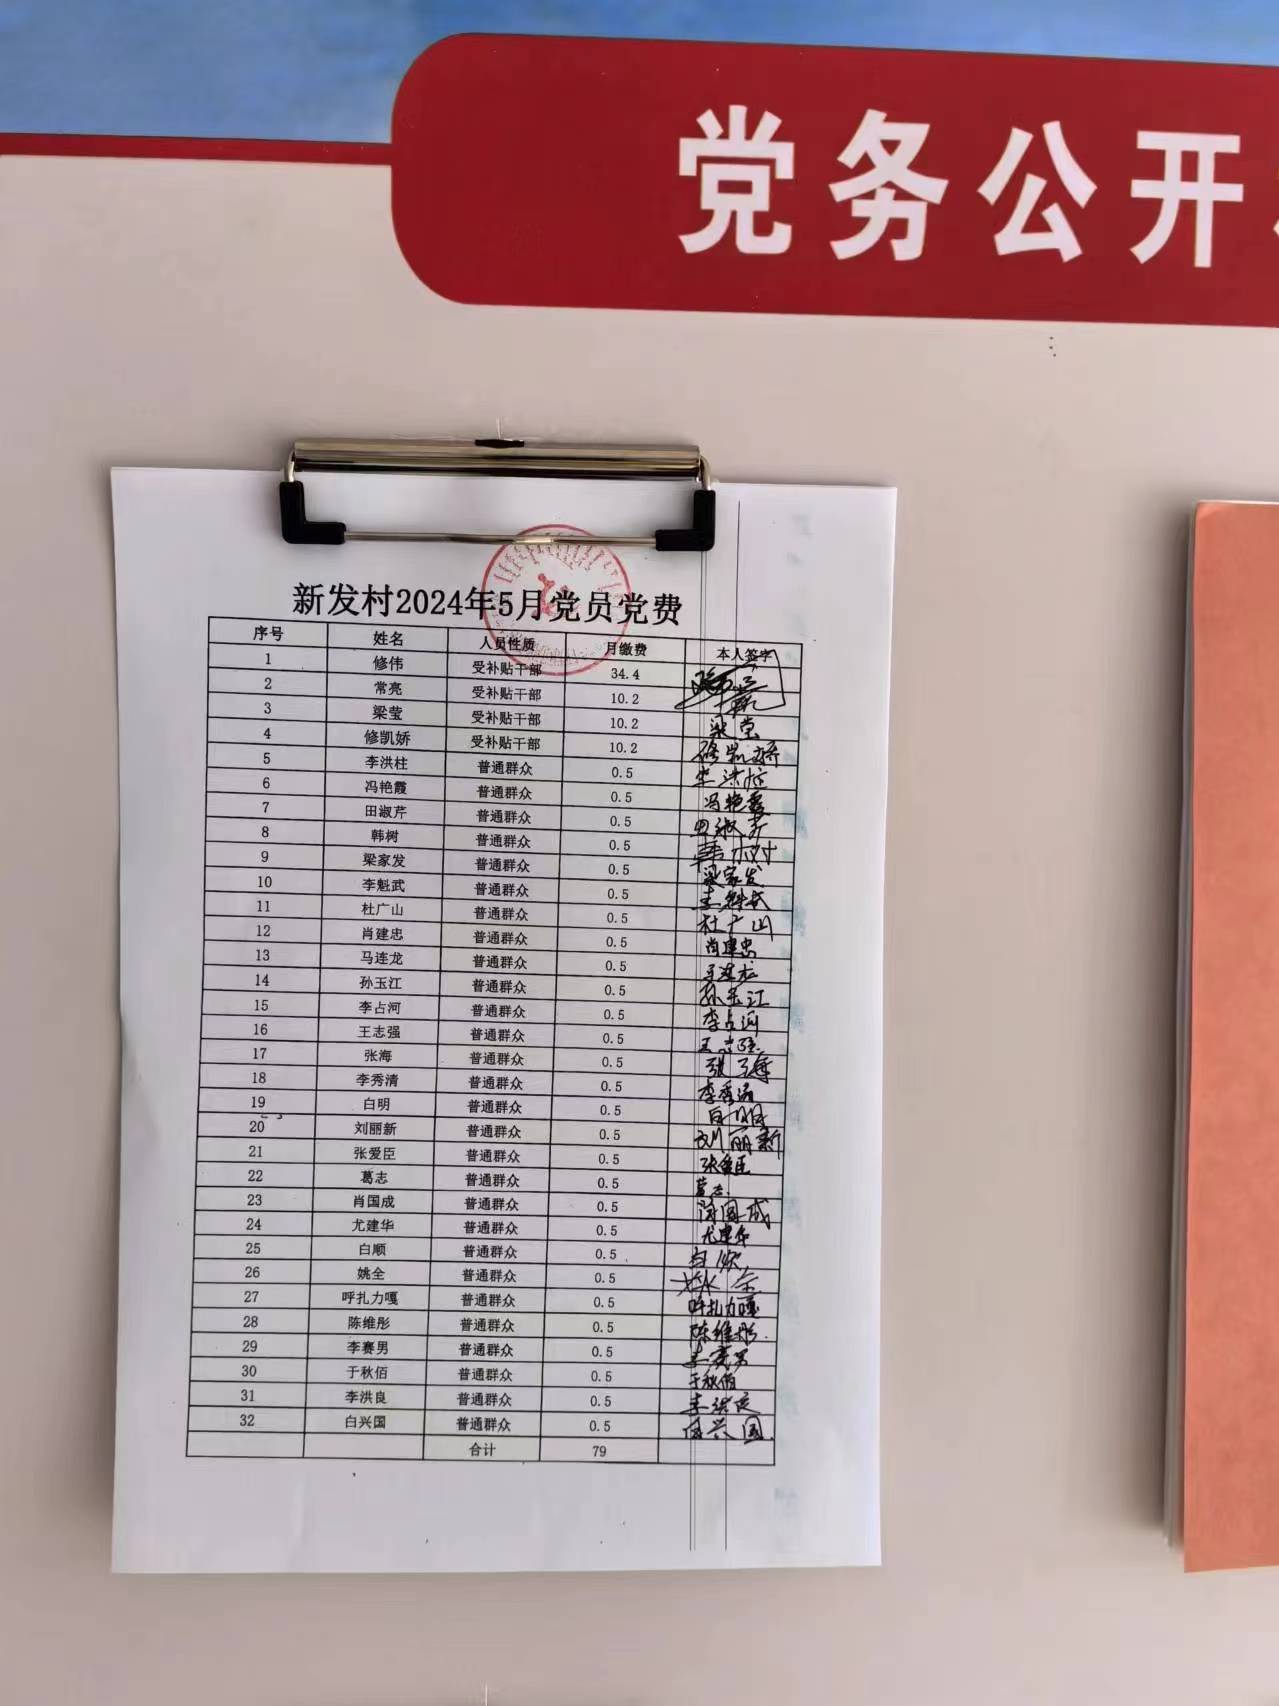 党务公开
新发村2024年5月党员党费
序号 姓名 人员性质 月缴费 本人签字
1 修伟 受补贴干部 34.4
2 常亮 受补贴干部 10.2
3 梁莹 受补贴干部 10.2 梁莹
4 修凯娇 受补贴干部 10.2 修凯娇
5 李洪柱 普通群众 0.5 李洪柱
6 冯艳霞 普通群众 0.5 冯艳霞
7 田淑芹 普通群众 0.5 田淑芹
8 韩树 普通群众 0.5 韩树
9 梁家发 普通群众 0.5 梁家发
10 李魁武 普通群众 0.5 李魁武
11 杜广山 普通群众 0.5 杜广山
12 肖建忠 普通群众 0.5 肖建忠
13 马连龙 普通群众 0.5 马连龙
14 孙玉江 普通群众 0.5 孙玉江
15 李占河 普通群众 0.5 李占河
16 王志强 普通群众 0.5 王志强
17 张海 普通群众 0.5 张海
18 李秀清 普通群众 0.5 李秀清
19 白明 普通群众 0.5 白明
20 刘丽新 普通群众 0.5 刘丽新
21 张爱臣 普通群众 0.5 张爱臣
22 葛志 普通群众 0.5 葛志
23 肖国成 普通群众 0.5 肖国成
24 尤建华 普通群众 0.5 尤建华
25 白顺 普通群众 0.5 白顺
26 姚全 普通群众 0.5 姚全
27 呼扎力嘎 普通群众 0.5 呼扎力嘎
28 陈维彤 普通群众 0.5 陈维彤
29 李赛男 普通群众 0.5 李赛男
30 于秋佰 普通群众 0.5 于秋佰
31 李洪良 普通群众 0.5 李洪良
32 白兴国 普通群众 0.5 白兴国
合计 79